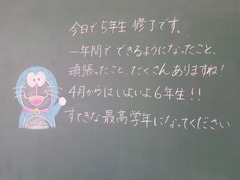 今日で5年生 修了です。
一年間で できるようになったこと、
頑張ったこと、たくさん ありますね!
4月からは いよいよ 6年生!!
すてきな 最高学年に なってください